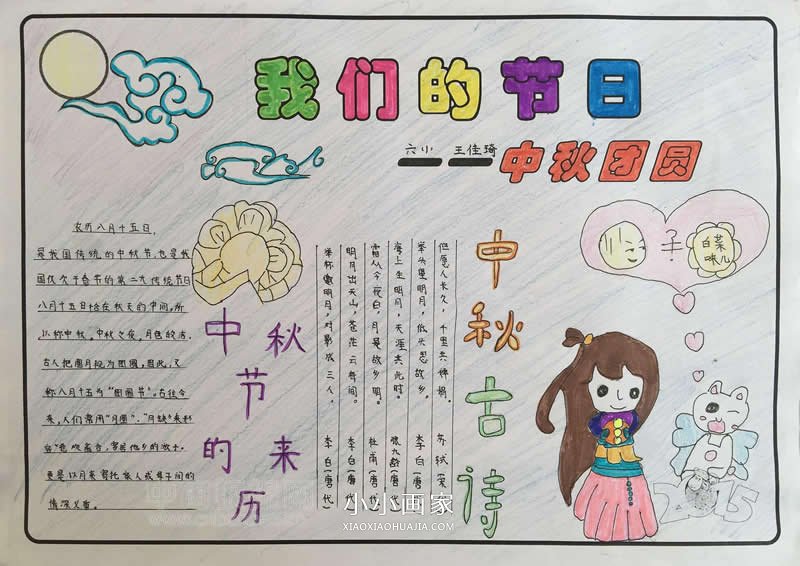 我们的节日
六小 王佳琦
中秋团圆
农历八月十五日,
是我国传统的中秋节,也是我
国仅次于春节的第二大传统节日
八月十五日恰在秋天的中间,所
以称中秋。中秋之夜,月色皎洁,
古人把圆月视为团圆,因此,又
称八月十五为“团圆节”。古往今
来,人们常用“月圆”、“月缺”来形
容“悲欢离合,客居他乡的游子,
更是以月来寄托
情深义重。
中秋节的来历
举杯邀明月,对影成三人。 李白(唐代)
明月出天山,苍茫云海间。 李白(唐代)
露从今夜白,月是故乡明。 杜甫(唐代)
海上生明月,天涯共此时。 张九龄(唐代)
举头望明月,低头思故乡。 李白(唐)
但愿人长久,千里共婵娟。 苏轼(宋)
中秋古诗
白菜
味儿
2015
小小画家
XIAOXIAOHUAJIA.COM